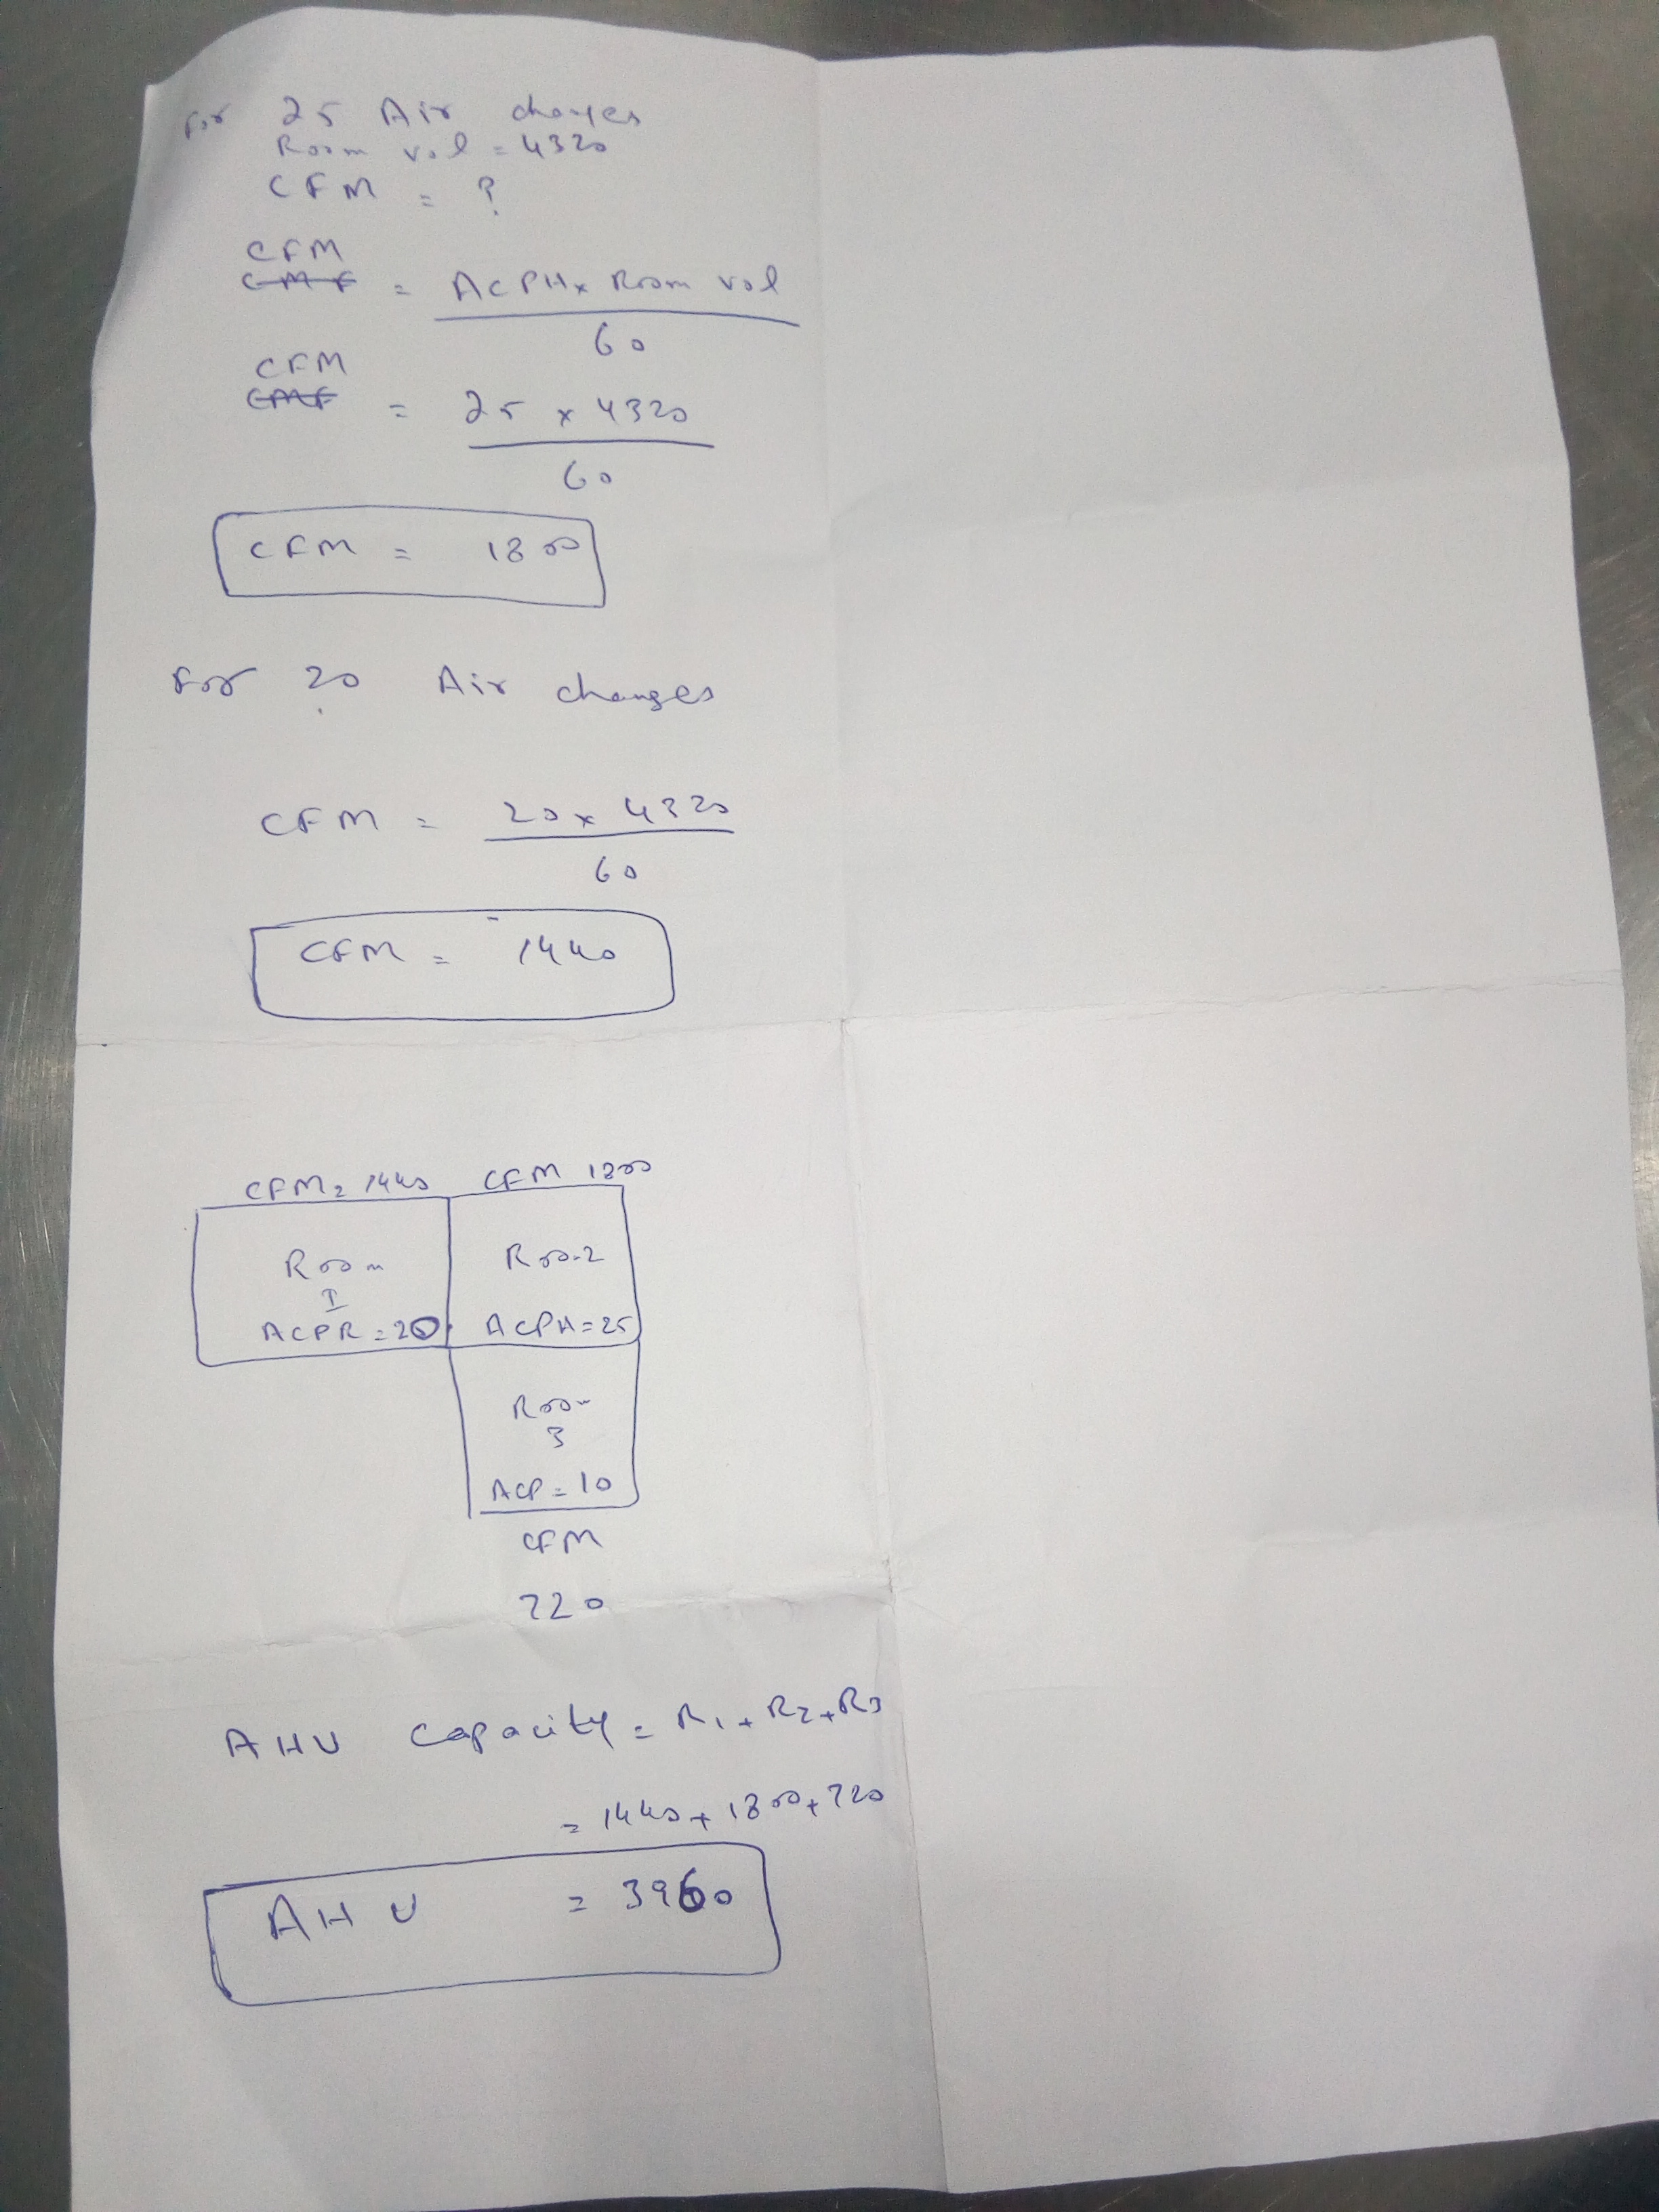 For 25 Air changes
Room vol = 4320
CFM = ?
CFM
CMF = ACPH x Room vol
60
CFM
CMF = 25 x 4320
60
CFM = 1800
For 20 Air changes
CFM = 20 x 4320
60
CFM = 1440
CFM = 1440 CFM 1800
Room Roo.2
I
ACPR = 20 ACPH = 25
Room
3
ACP = 10
CFM
720
AHU Capacity = R1 + R2 + R3
= 1440 + 1800 + 720
AHU = 3960